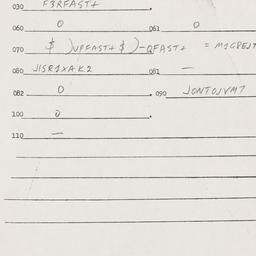 030 F3RFAST+ .
060 0 061 0
070 $ )UPFAST+ $ )-QFAST+ = M1GREJT
080 J1SR1XAK2 081 —
082 0 . 090 JONTOJVM7
100 0 .
110 —